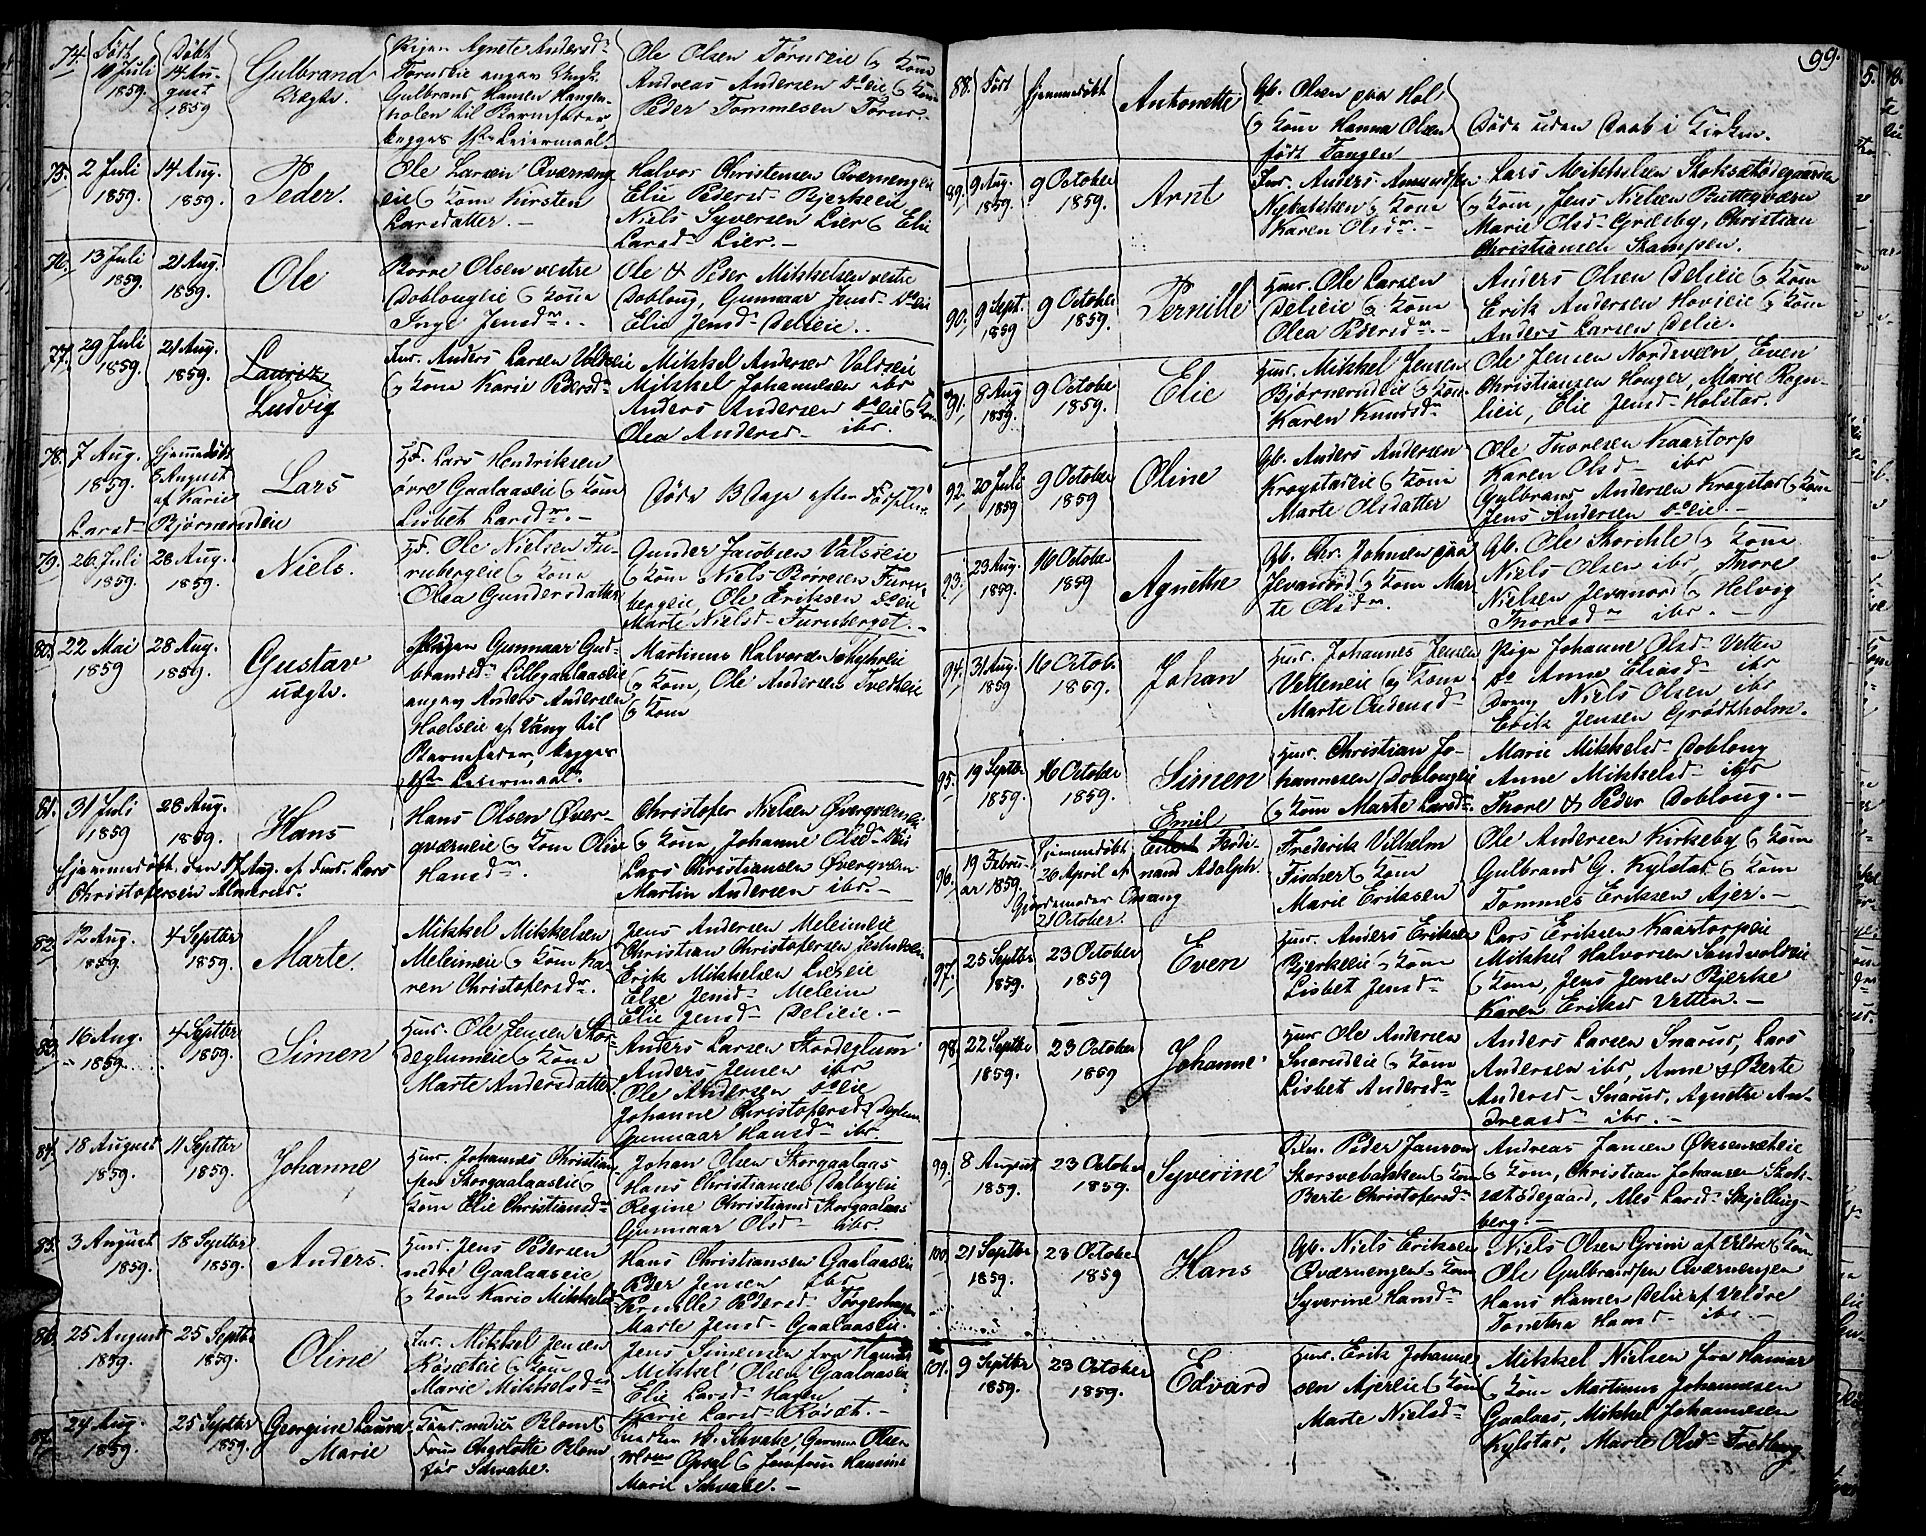 99.
74. Født 10 Juli 1859. Døbt 14 August 1859 Gulbrand Uægte. Pigen Agnete Andersdr
Gulbrand Hansen
til Barnefader
begges 1ste Leiermaal.
Ole Olsen Tørnseie & Kone
Andreas Andersen do eie & Kone
Peder Tommesen
75. 2 Juli 1859. 14 Aug. 1859. Peder. Ole Larsen Qværneng-
eie & Kone Kirsten
Larsdatter. -
Halvor Christensen Qværnengeie
Elie Pedersd - Bjerkeeie
Niels Syversen Lier & Elie
Larsd - Lier. -
76. 13 Juli 1859. 21 Aug. 1859. Ole Børre Olsen vestre
Doblougeie & Kone
Inge Jensdr. -
Ole & Peder Mikkelsen vestre
Dobloug, Gunnaar Jensd - do eie
Elie Jensd - Delieie. -
77. 29 Juli 1859. 21 Aug. 1859. Lauritz Ludvig Inr. Anders Larsen Voldseie
& Kone Karie Pedersdr
Mikkel Andersen Voldseie
Mikkel Johannesen ibr
Anders Andersen do eie & Kone
Olea Andersd - ibr.
78. 7 Aug. 1859. Hjemmedøbt 8 August af Karie
Larsd - Bjørnerudeie
Lars Hf. Lars Hendriksen
øvre Gaalaaseie & Kone
Lisbet Larsdr. -
Døde 3 Dage efter Fødselen
79. 26 Juli 1859. 28 Aug. 1859. Niels. Hf. Ole Nielsen Fu-
rubergeie & Kone
Olea Gundersdatter
Gunder Jacobsen Valseie
& Kone Niels Børresen Furu-
bergeie, Ole Eriksen do eie
Marte Nielsd - Furuberget. -
80. 22 Mai 1859 28 Aug. 1859. Gustav uægte. Pigen Gunnaar Gud-
brandsdr Lillegaalaaseie
angav Anders Andersen
Hoelseie af Vang til
Barnefader, begges
1ste Leiermaal.
Martinus Halvorsen
& Kone, Ole Andersen Tredteie
& Kone
81. 31 Juli 1859 28 Aug. 1859. Hans
Hjemmedøbt den 17 Aug. af Huusr. Lars
Christophersen Almerud.
Hans Olsen Øver-
qværneie & Kone Oline
Hansdr. -
Christofer Nielsen Øvergværneie
& Kone, Johanne Olsd -
Lars Christiansen Øvergvern
Martin Andersen ibr. -
82. 12 Aug. 1859. 4 Septbr 1859. Marte. Mikkel Mikkelsen
Meleimeie & Kone Ka-
ren Christofersdr.
Jens Andersen Meleimeie
Christian Christophersen
Erik Mikkelsen Lierseie
Else Jensd - Meleim
Elie Jensd - Delieie. -
83. 16 Aug. 1859. 4 Septbr 1859. Simen Huusr. Ole Jensen Stor-
deglumeie & Kone
Marte Andersdatter
Anders Larsen Stordeglum
Anders Jensen ibr
Ole Andersen do eie
Johanne Christophersd - Deglum
Gunnaar Hansdr ibr.
84. 18 August 1859. 11 Septbr 1859. Johanne Huusr. Johannes Christian-
sen Storgaalaaseie &
Kone Elie Christiansdr
Johan Olsen Storgaalaas
Hans Christiansen Dalbyeie
Regine Christiansd Storgaalaas
Gunnaar Olsd - ibr.
85. 3 August 1859. 18 Septbr 1859. Anders. Huusr. Jens Pedersen
nedre Gaalaaseie
& Kone Karie Mikkelsd
Hans Christiansen Gaalaaseie
Peder Jensen ibr
Pernille Pedersd -
Marte Jensd - Gaalaaseie.
86. 25 August 1859. 25 Septbr 1859. Oline Inr. Mikkel Jensen
Røsæteie & Kone
Marie Mikkelsdr
Jens Simensen fra Hamar
Mikkel Olsen Gaalaaseie
Elie Larsd - Hagen
Marie Larsd - Røsæt. -
87. 24 Aug. 1859. 25 Septbr 1859. Georgine Laura Marie
Blom &
Frue Charlotte Blom
før Schwabe.
Schwabe,
Opsal & Jomfrue Hansine
Marie Schwabe. -
88. Født Hjemmedøbt Antonette Gb. Olsen paa Hol
& Kone Hanna Olsen
født Tangen
Døde uden Daab i Kirken.
89. 9 Aug. 1859. 9 October 1859. Arnt Inr. Anders Amundsen
Nybakken & Kone
Karen Olsdr. -
Lars Mikkelsen Stoksætødegaarden
& Kone, Jens Nielsen
Marie Olsd - Græsby, Christian
Christiansen Kampen.
90. 9 Sept. 1859 9 October 1859. Pernille Huusr. Ole Larsen
Delieie & Kone
Olea Pedersdr. -
Anders Olsen Delieie & Kone
Erik Andersen Hovieie & Kone
Anders Larsen Delie.
91. 8 Aug 1859. 9 October 1859. Elie Huusr. Mikkel Jensen
Bjørnerudeie & Kone
Karen Knudsdr
Ole Jensen Nordsveen, Even
Christiansen Honger, Marie Rogn-
lieie, Elie Jensd - Holstad.
92. 20 Juli 1859 9 October 1859. Oline Gb. Anders Andersen
Krogstadeie & Kone
Marte Olsdatter
Ole Thoresen Kaartorp
Karen Olsd - ibr
Gulbrand Andersen Krogstad & Kone
Jens Andersen do eie. -
93. 23 Aug. 1859. 16 October 1859 Agnethe Gb. Chr. Johnsen paa
Jevanord & Kone Mar-
te Olsdr.
Gb. Ole Skorkle & Kone
Niels Olsen ibr, Thore
Nielsen Jevanord & Helvig
Thoresdr ibr. -
94. 31 Aug. 1859 16 Octobr 1859. Johan Huusr. Johannes Jensen
Vetteneie & Kone
Marte Pedersd -
Pige Johanne Olsd - Vetten
do Anne Eliasd - ibr
Dreng Niels Olsen ibr
Erik Jensen Grødtholm.
95. 19 Septbr 1859. 16 October 1859. Simen Huusr. Christian Jo-
hannesen Doblougeie
& Kone Marte Larsdr.
Marie Mikkelsd - Doblong
Anne Mikkelsd - ibr
Thore & Peder Doblong. -
96. 19 Februar 1859. Hjemmedøbt 26 April af Gjordemoder 21 October.
Emil Ferdi-
nand Adolph
Frederik Vilhelm
Fischer & Kone
Marie Eriksen
Ole Andersen Kirkeby & Kone
Gulbrand G. Kylstad & Kone
Tommes Eriksen Ajer. -
97. 25 Septbr 1859. 23 October 1859 Even Huusr. Anders Eriksen
Bjerkeeie & Kone
Lisbet Jensdr
Lars Eriksen Kaartorpeie
Mikkel Halvorsen Sandvoldeie
& Kone, Jens Jensen Bjerke
Karen Eriksd Vetten. -
98. 22 Septbr 1859. 23 October 1859 Johanne Huusr Ole Andersen
Snarudeie & Kone
Lisbet Andersdr
Anders Larsen Snarud, Lars
Andersen ibr, Anne & Berte
Andersd - Snarud, Agnethe An-
dreasdr ibr. -
99. 8 August 1859. 23 October 1859. Syverine Peder Jansson
Skorsvebakken & Kone
Berte Christophersdr
Andreas Jansen Øksensæteie
& Kone, Christian Johansen Stok-
sætødegaard, Ales Larsd - Skjelleng-
berg. -
100. 21 Septbr 1859. 23 October 1859 Hans Gb. Niels Eriksen
Qværnengen & Kone
Syverine Hansdr
Niels Olsen Grini af Veldre & Kone
Ole Gulbrandsen Qværnengen
Hans Hansen Delie af Veldre
Tonetha Hansd - ibr. -
101. 9 Septbr 1859. 23 October 1859. Edvard Huusr. Erik Johannes-
sen Ajerseie & Kone
Marte Nielsdr
Mikkel Nielsen fra Hamar
& Kone Martinus Johannesen
Gaalaas, Mikkel Johannesen
Kylstad, Marte Olsd - Fredberg